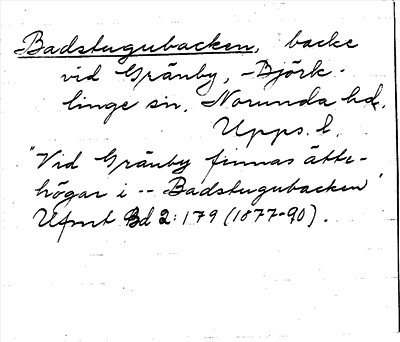 Badstugubacken, backe
vid Gränby, Björk-
linge sn, Norunda hd,
Upps. l.
"Vid Gränby finnas ätte-
högar i -- Badstugubacken"
Ufmt Bd 2:179 (1877-90).